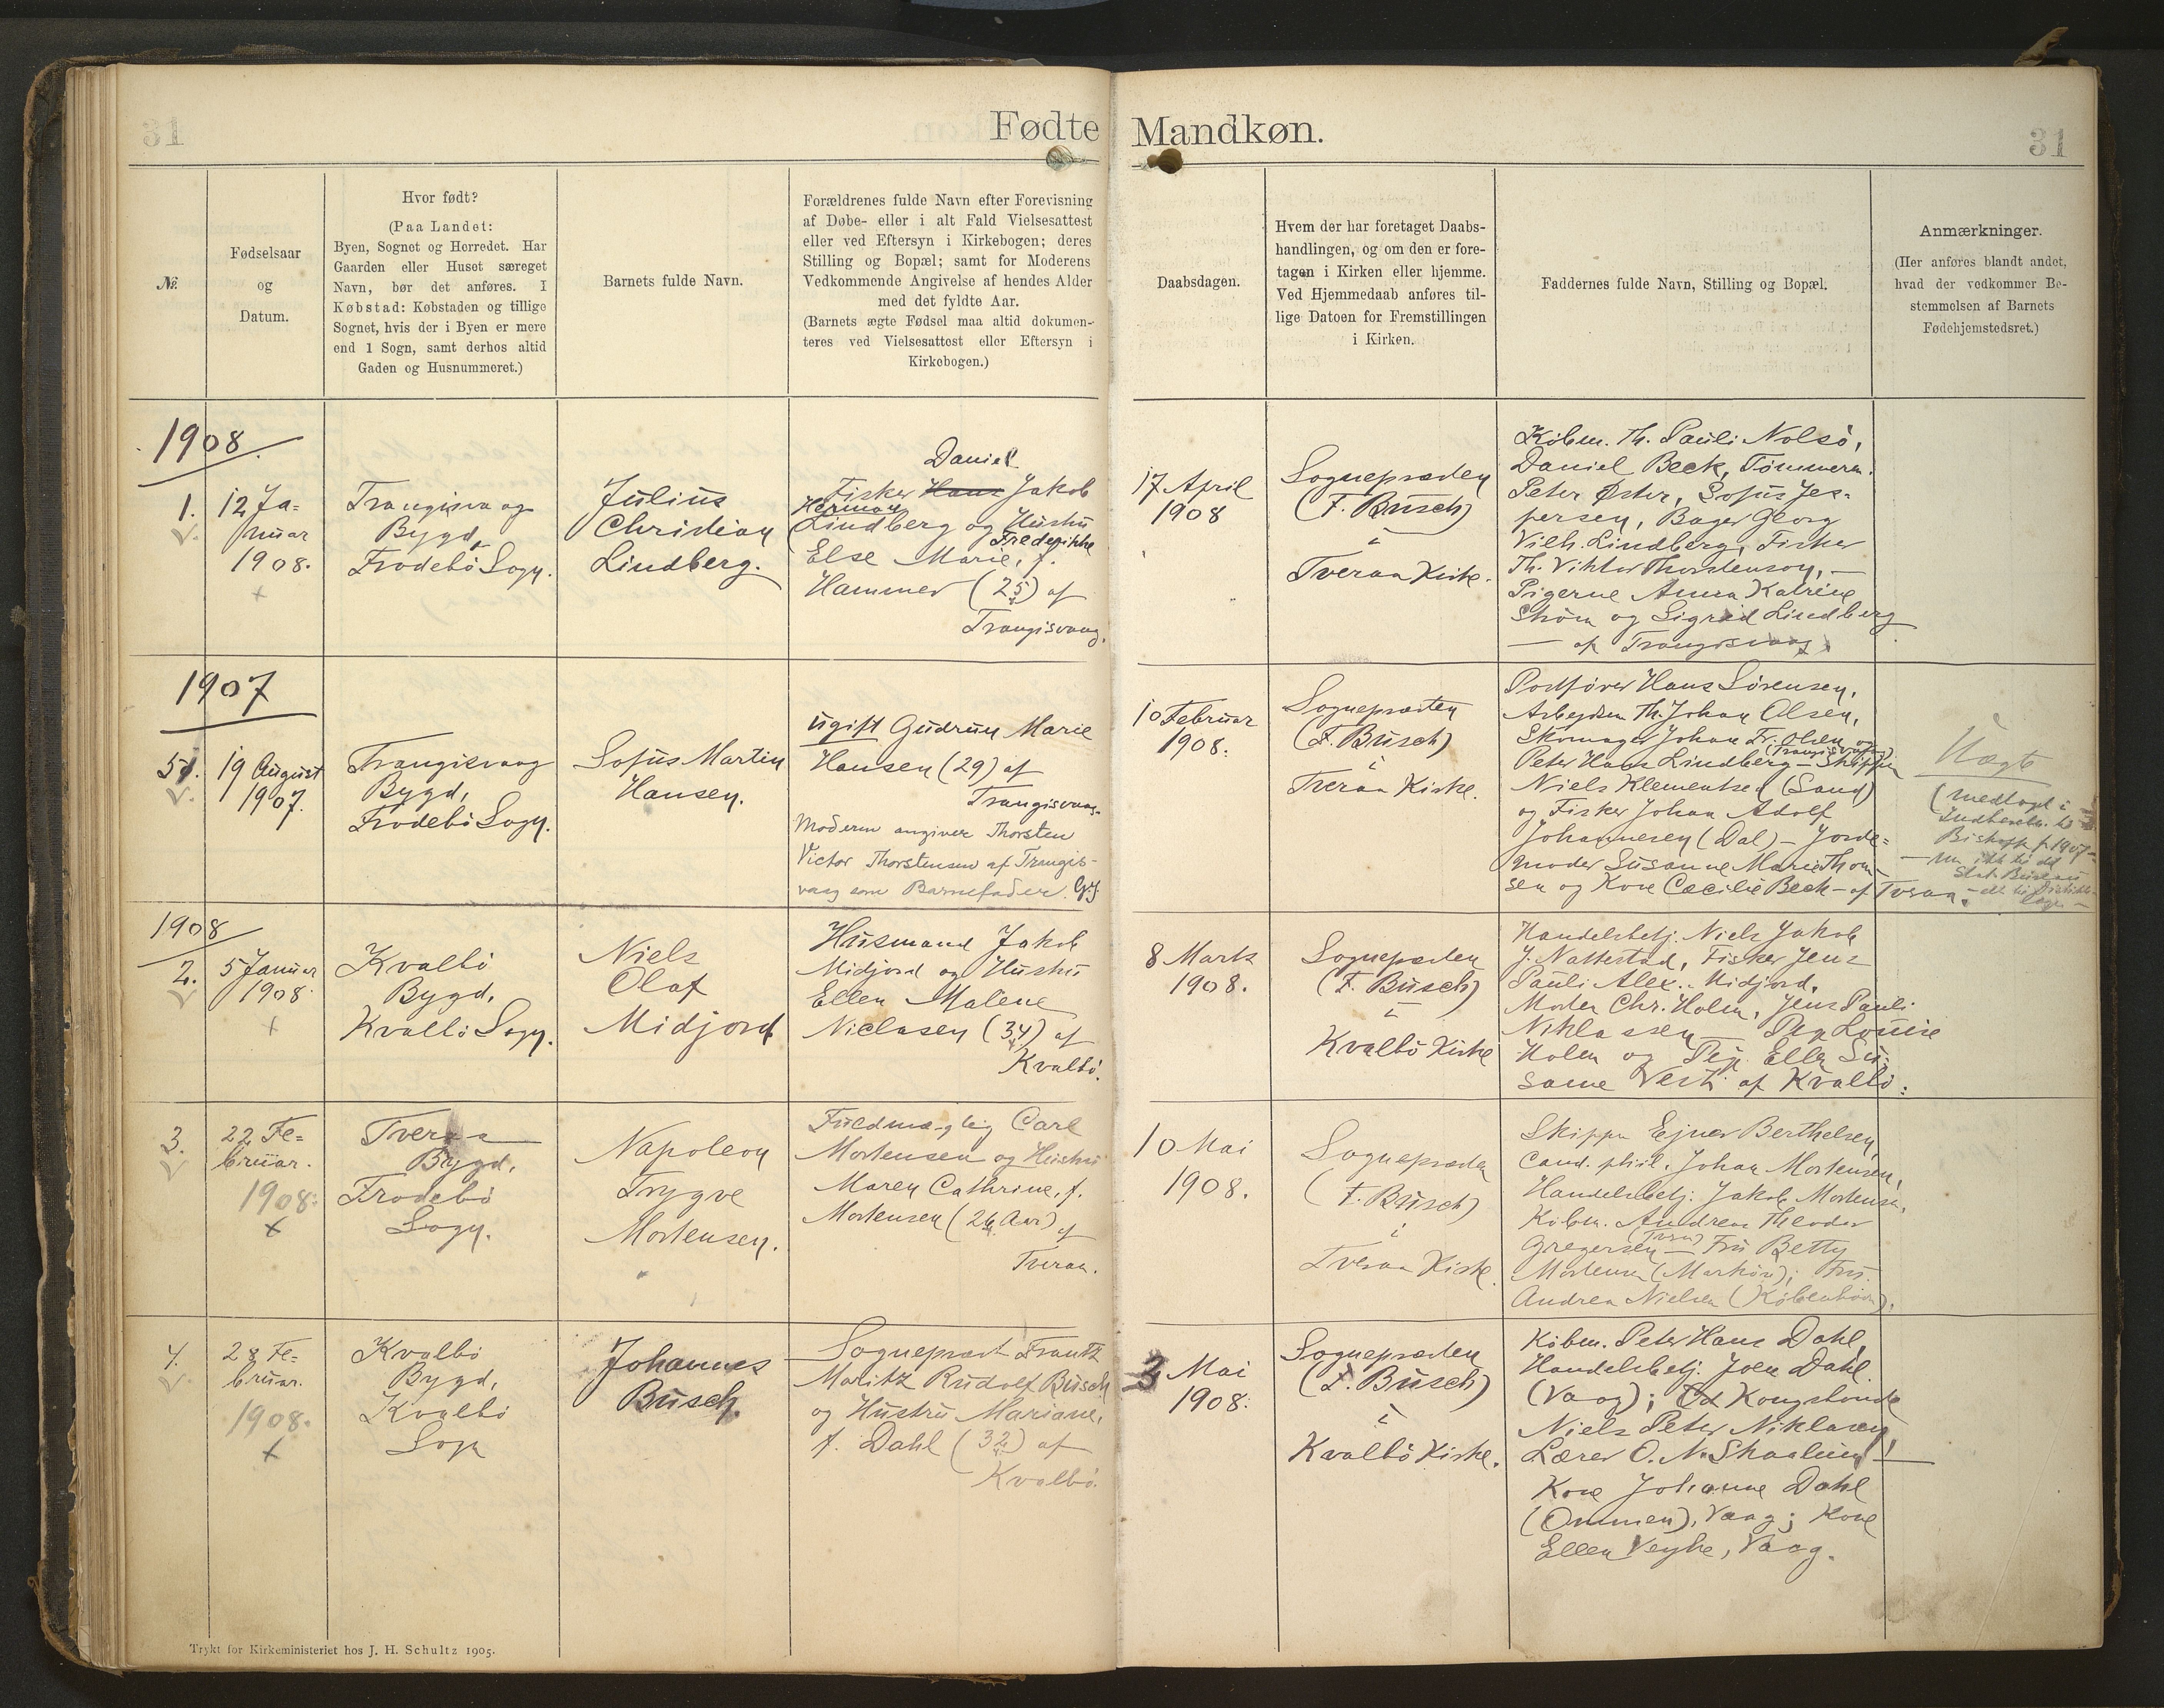 31
Fødte
Mandkøn.
31
№
Fødselsaar
og
Datum.
Hvor født?
(Paa Landet:
Byen, Sognet og Herredet. Har
Gaarden eller Huset særeget
Navn, bør det anføres. I
Købstad: Købstaden og tillige
Sognet, hvis der i Byen er mere
end 1 Sogn, samt derhos altid
Gaden og Husnummeret.)
Barnets fulde Navn.
Forældrenes fulde Navn efter Forevisning
af Døbe- eller i alt Fald Vielsesattest
eller ved Eftersyn i Kirkebogen; deres
Stilling og Bopæl; samt for Moderens
Vedkommende Angivelse af hendes Alder
med det fyldte Aar.
(Barnets ægte Fødsel maa altid dokumen-
teres ved Vielsesattest eller Eftersyn i
Kirkebogen.)
Daabsdagen.
Hvem der har foretaget Daabs-
handlingen, og om den er fore-
tagen i Kirken eller hjemme.
Ved Hjemmedaab anføres til-
lige Datoen for Fremstillingen
i Kirken.
Faddernes fulde Navn, Stilling og Bopæl.
Anmærkninger.
(Her anføres blandt andet,
hvad der vedkommer Be-
stemmelsen af Barnets
Fødehjemstedsret.)
1908
1.
12 Ja-
nuar
1908.
Trangisvaag
Bygd,
Frodebö Sogn.
Julius
Christian
Lindberg.
Daniel
Fisker Hans Jakob
Herman
Lindberg og Hustru
Frederikke
Else Marie, f.
Hammer (25) af
Trangisvaag.
17 April
1908
Sognepræsten
(F. Busch)
i
Tveraa Kirke.
Köbm. Th. Pauli Nolsö,
Daniel Beck, Tömmerm.
Peter Øster, Sofus Jes-
persen, Bager Georg
Vilh. Lindberg, Fisker
Th. Viktor Thorstenson, —
Pigerne Anna Katrine
Ström og Sigrid Lindberg
— af Trangisvaag.
1907
51.
19 August
1907.
Trangisvaag
Bygd,
Frodebö Sogn.
Sofus Martin
Hansen.
ugift Gudrun Marie
Hansen (29) af
Trangisvaag.
Moderen angiver Thorsten
Victor Thorstensen af Trangis-
vaag som Barnefader. G.J.
10 Februar
1908.
Sognepræsten
(F. Busch)
i
Tveraa Kirke.
Postförer Hans Sörensen,
Arbejdsm. Th. Johan Olsen,
Skomager Johan Fr. Olsen og
(Trangisvaag)
Peter Hans Lindberg — Skipper
Niels Klementsen (Sand)
og Fisker Johan Adolf
Johannesen (Dal) — Jorde-
moder Susanne Marie Thom-
sen og Kone Cæcilie Beck — af Tveraa.
Uægte
(medtaget i
Indberetn. til
Biskoppen f. 1907 —
1908
2.
5 Januar
1908.
Kvalbö
Bygd,
Kvalbö Sogn.
Niels
Olaf
Midjord
Husmand Jakob
Midjord og Hustru
Ellen Malene
Niclasen (34) af
Kvalbö.
8 Marts
1908.
Sognepræsten
(F. Busch)
i
Kvalbö Kirke
Handelsbetj. Niels Jakob
J. Nattestad, Fisker Jens
Pauli Alex. Midjord,
Morten Chr. Holm, Jens Pauli
Niklassen — Pig. Louise
Holm og Pig. Ellen Su-
sanne Vest: af Kvalbö.
3.
22 Fe-
bruar.
1908.
Tveraa
Bygd,
Frodebö
Sogn.
Napoleon
Trygve
Mortensen.
Fuldmægtig Carl
Mortensen og Hustru
Maren Cathrine, f.
Mortensen (26 Aar) af
Tveraa.
10 Mai
1908.
Sognepræsten
(F. Busch)
i
Tveraa Kirke.
Skipper Ejner Berthelsen,
Cand. phil. Johan Mortensen,
Handelsbetj. Jakob Mortensen,
Köbm. Andreas Theodor
Gregersen — Fru Betty
Mortensen (Marköre); Fru
Andrea Nielsen (Köbenhavn).
4.
28 Fe-
bruar.
1908.
Kvalbö
Bygd,
Kvalbö
Sogn
Johannes
Busch.
Sognepræst Frantz
Moritz Rudolf Busch
og Hustru Mariane,
f. Dahl (32) af
Kvalbö.
3 Mai
1908.
Sognepræsten
(F. Busch)
i
Kvalbö Kirke.
Köbm. Peter Hans Dahl,
Handelsbetj. Joen Dahl
(Vaag); Od Kongsbonde
Niels Peter Niklasen,
Lærer O. N. Skaalum —
Kone Johanne Dahl
(Ommen), Vaag; Kone
Ellen Veyhe, Vaag.
Trykt for Kirkeministeriet hos J. H. Schultz 1905.